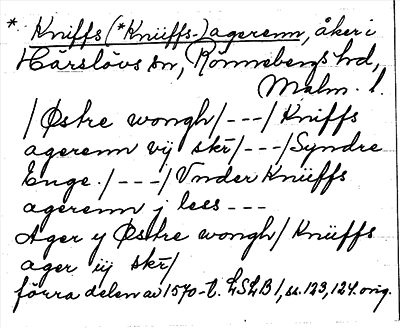 * Kniffs (*Knüffs-)agerenn, åker i
Härslövs sn, Rönnebergs hd,
Malm. l.
/Østre wongh/---/Kniffs
agerenn vij skr/---/Syndre
Enge./---/Vnder Knüffs
agerenn j less ---
Ager y Østre wongh/Knüffs
ager iij skr/
förra delen av 1570-t. LSLB 1, ss. 123, 124 orig.